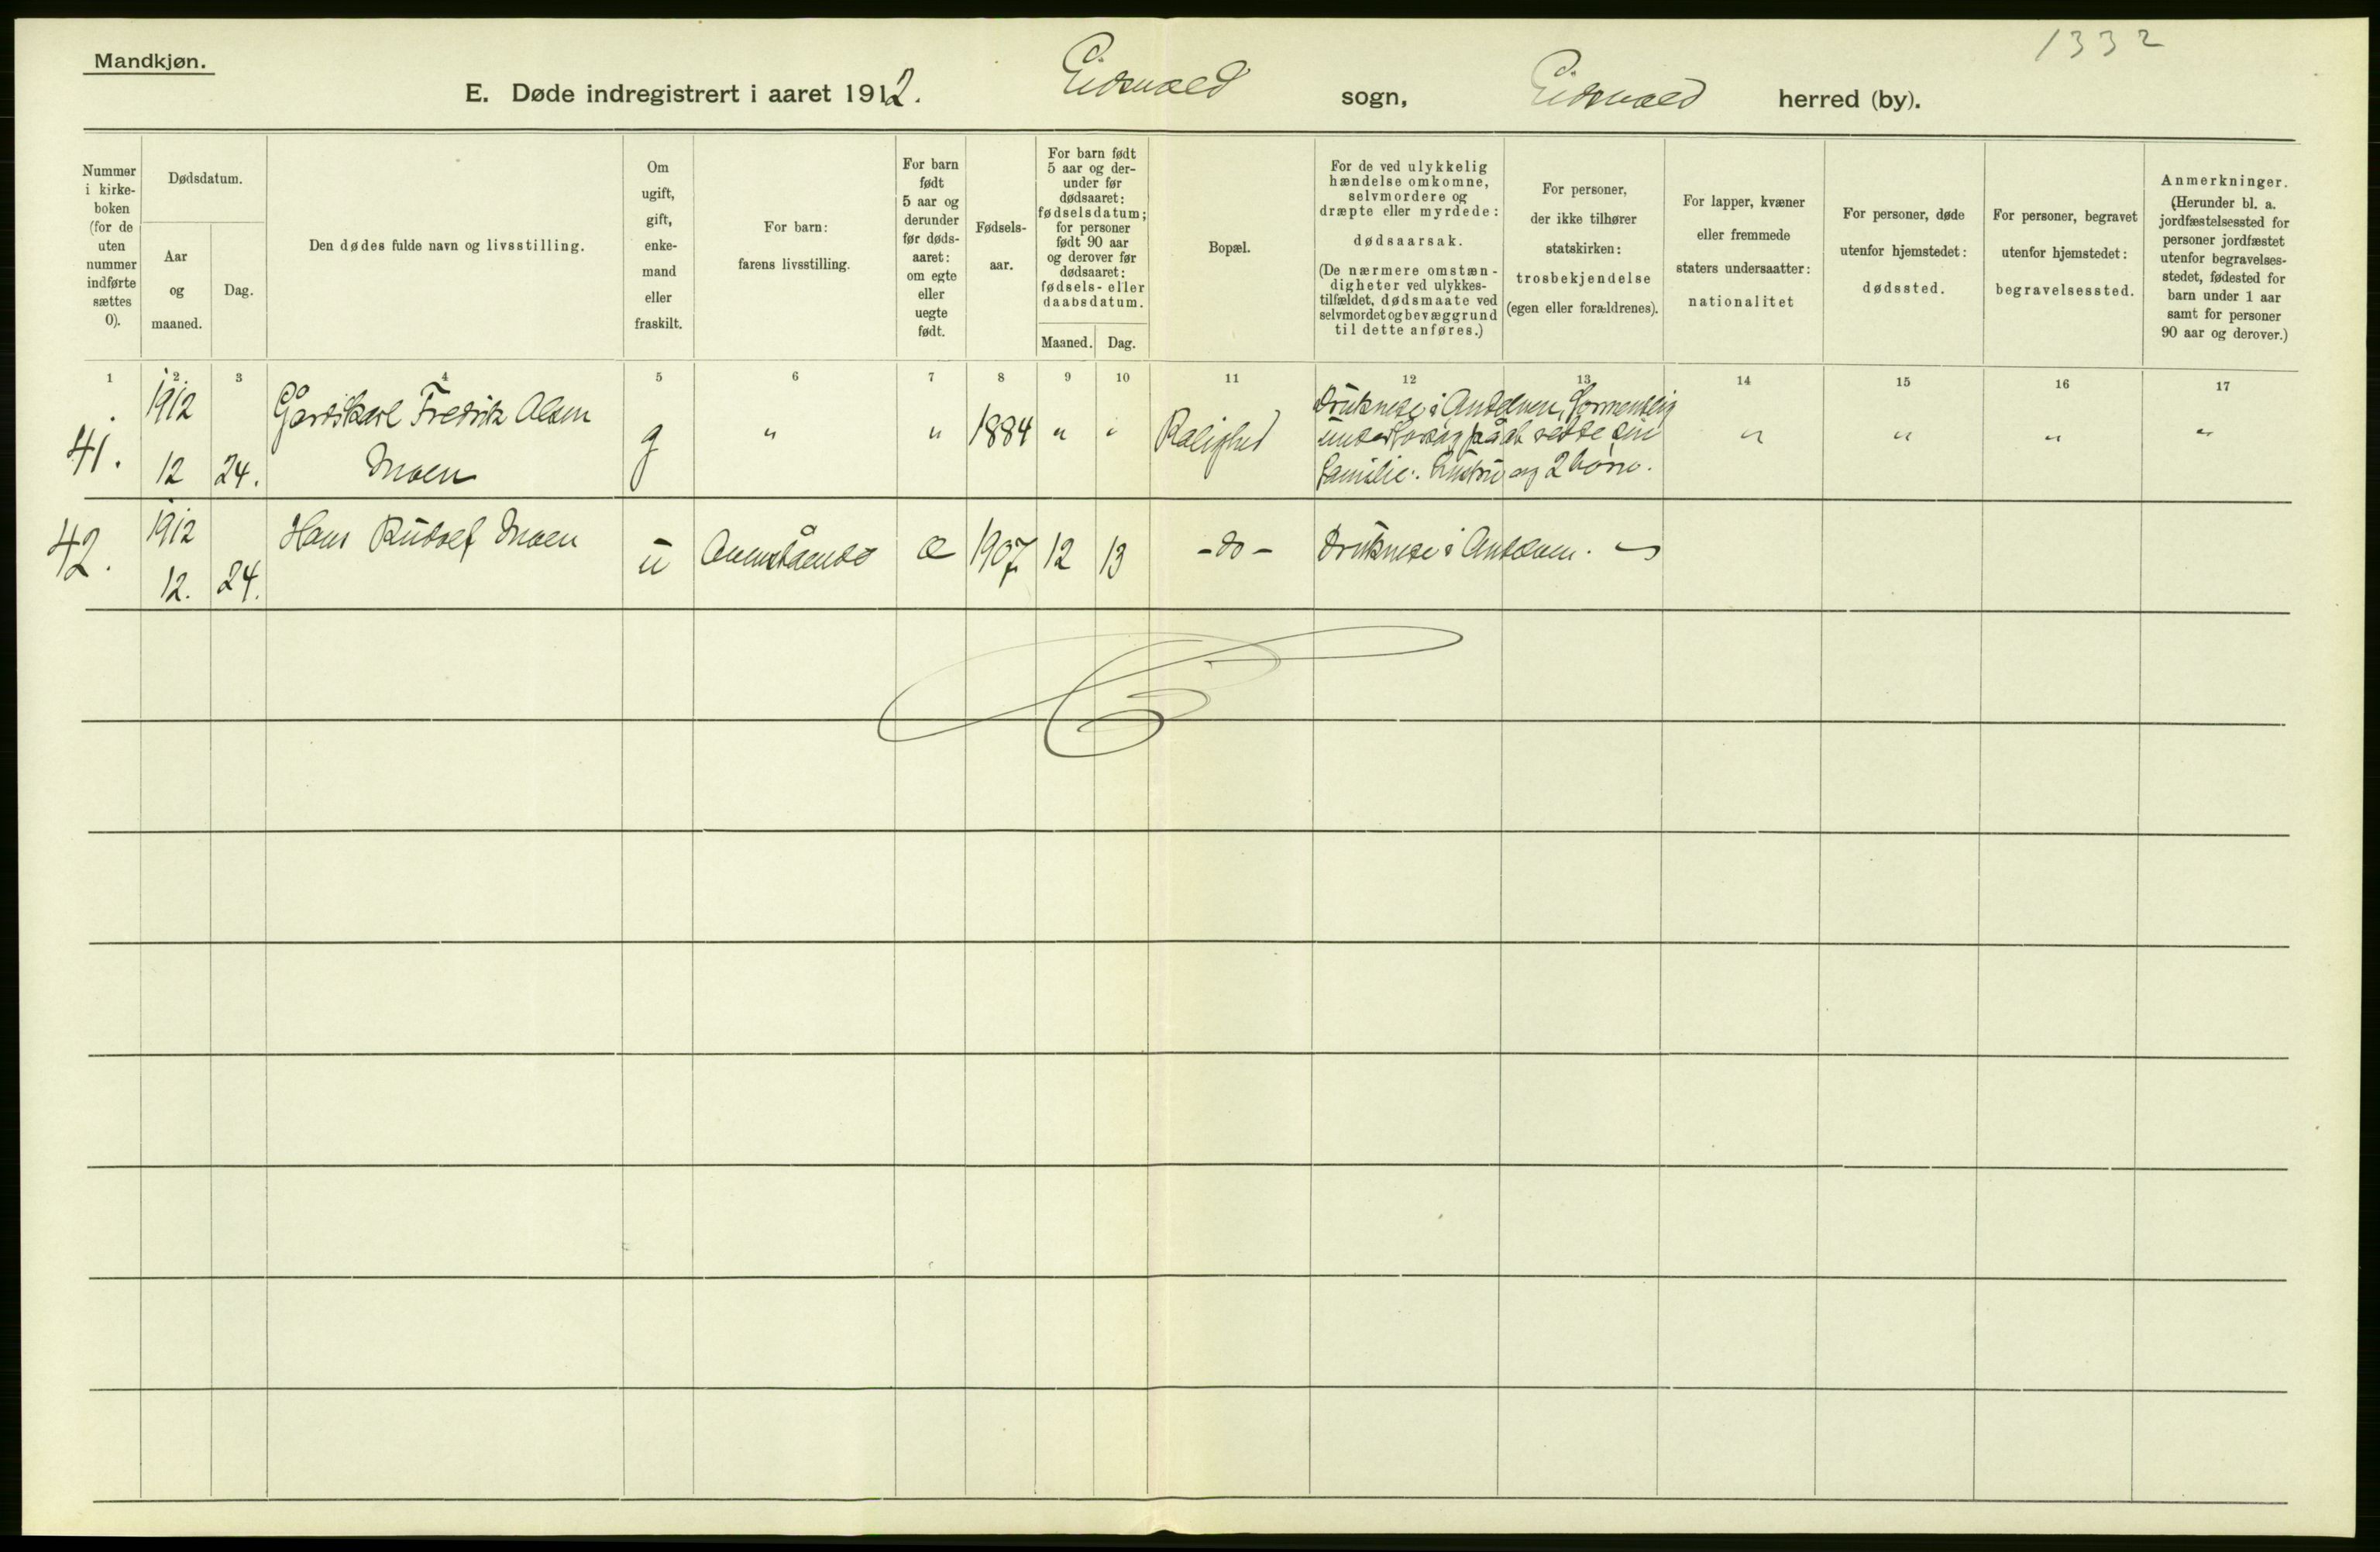 Mandkjøn.
1332
E. Døde indregistrert i aaret 1912. Eidsvold sogn, Eidsvold herred (by).
Nummer i kirke-boken (for de uten nummer indførte sættes 0).
Dødsdatum.
Aar og maaned.
Dag.
Den dødes fulde navn og livsstilling.
Om ugift, gift, enke-mand eller fraskilt.
For barn: farens livsstilling.
For barn født 5 aar og derunder før døds-aaret: om egte eller uegte født.
Fødsels-aar.
For barn født 5 aar og der-under før dødsaaret: fødselsdatum; for personer født 90 aar og derover før dødsaaret: fødsels- eller daabsdatum.
Maaned. Dag.
Bopæl.
For de ved ulykkelig hændelse omkomne, selvmordere og dræpte eller myrdede: dødsaarsak. (De nærmere omstæn-digheter ved ulykkes-tilfældet, dødsmaate ved selvmordet og bevæggrund til dette anføres.)
For personer, der ikke tilhører statskirken: trosbekjendelse (egen eller forældrenes).
For lapper, kvæner eller fremmede staters undersaatter: nationalitet
For personer, døde utenfor hjemstedet: dødssted.
For personer, begravet utenfor hjemstedet: begravelsessted.
Anmerkninger. (Herunder bl. a. jordfæstelsessted for personer jordfæstet utenfor begravelses-stedet, fødested for barn under 1 aar samt for personer 90 aar og derover.)
1 2 3 4 5 6 7 8 9 10 11 12 13 14 15 16 17
41. 1912 12 24. Gårdskarl Fredrik Olsen Moen g " " 1884 " " Rolighed Druknede i Andelven, formentlig under forsøg på at redde sin familie: hustru og 2 børn. " " " "
42. 1912 12. 24. Hans Rudolf Moen u Ovenstående æ 1907 12 13 - do - Druknede i Andelven.